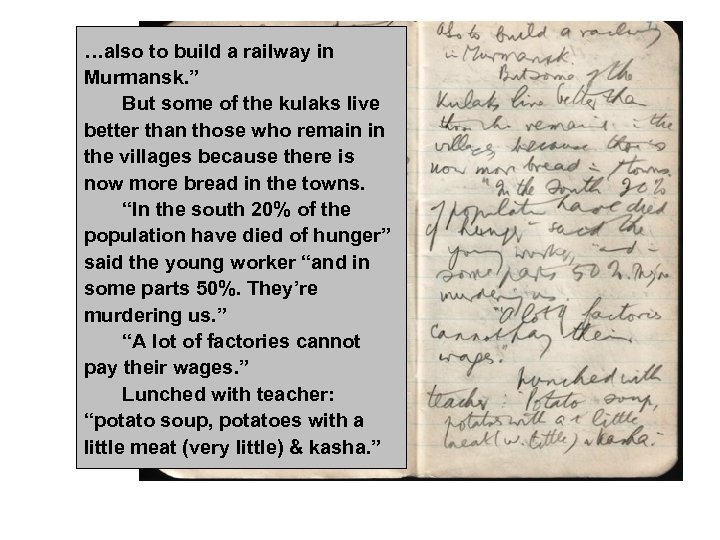 …also to build a railway in
Murmansk.”
But some of the kulaks live
better than those who remain in
the villages because there is
now more bread in the towns.
“In the south 20% of the
population have died of hunger”
said the young worker “and in
some parts 50%. They’re
murdering us.”
“A lot of factories cannot
pay their wages.”
Lunched with teacher:
“potato soup, potatoes with a
little meat (very little) & kasha.”
also to build a railway
in Murmansk.
But some of the
Kulaks live better than
those who remain in the
villages, because there is
now more bread in towns.
“In the south 20%
of population have died
of hunger” said the
young worker, “and in
some parts 50%. They're
murdering us.”
“A lot of factories
cannot pay their
wages.”
Lunched with
teacher: Potato soup,
potatoes with a little
meat (v. little) & kasha.